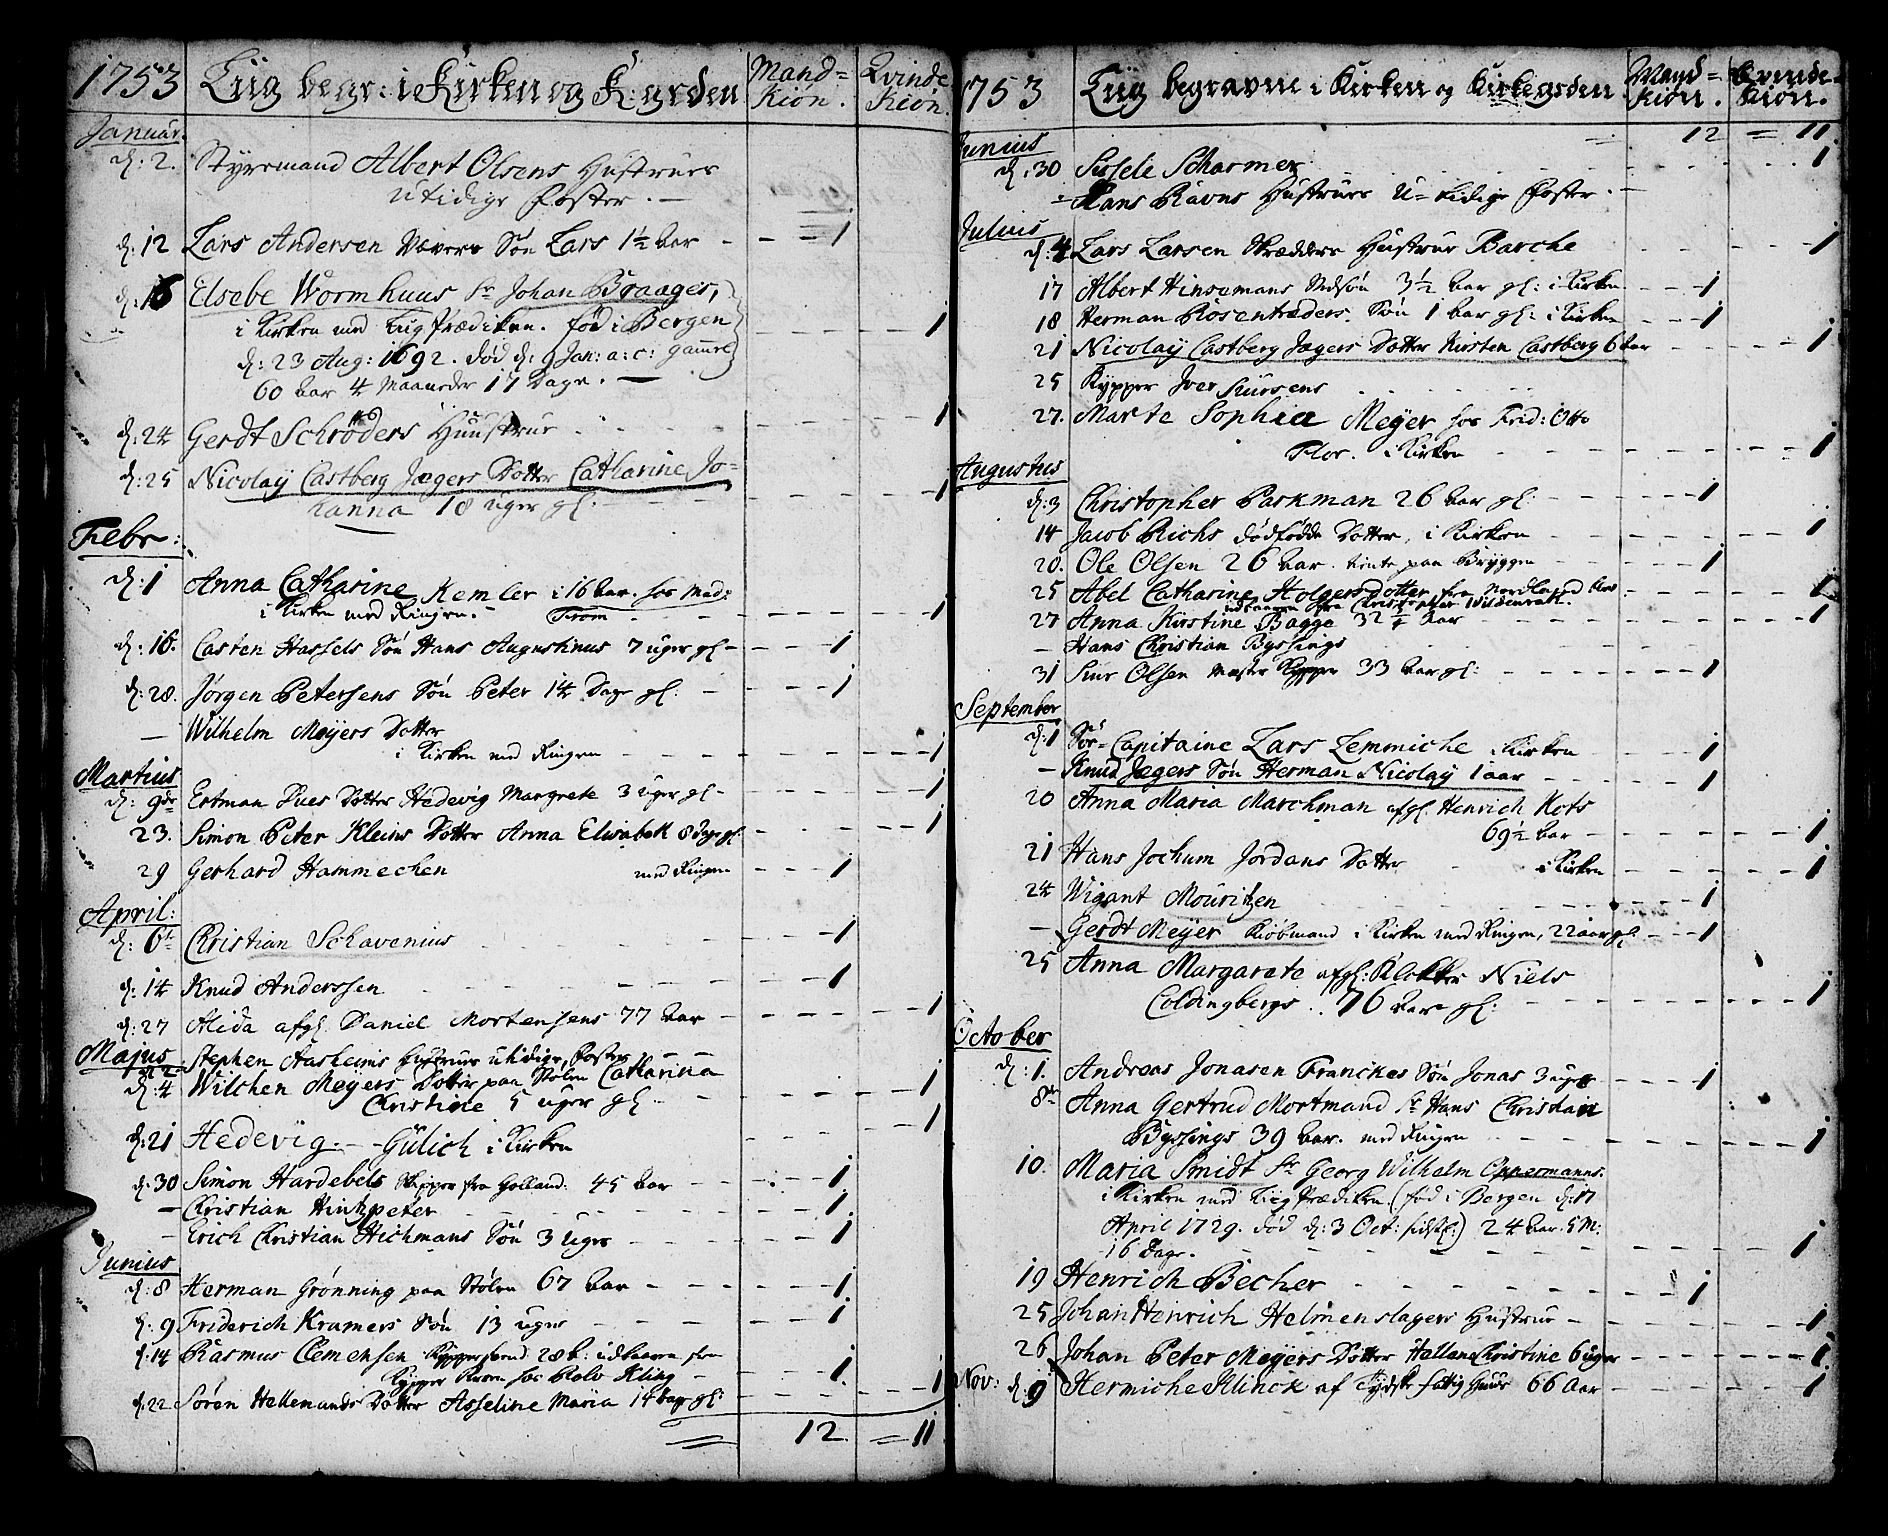 1753 Liig begr: i Kirken og K:gården Mand= Kiøn. Qvinde Kiøn.
Januar.
d: 2. Styrmand Albert Olsens Hustrues
utidige Foster. —
d: 12 Lars Andersen Vævers Søn Lars 1½ Aar - - - 1
d: 16 Elsebe Wormhuus Sr Johan Braages,
i Kirken med Liig Prædiken. fød i Bergen - - - 1
d: 23 Aug: 1692. død d: 9 Jan: a: c: gaml
60 Aar 4 Maaneder 17 Dage. —
d: 24 Gerdt Schrøders Huustrue - - - 1
d: 25 Nicolaÿ Castberg Jægers Dotter Catharine Jo=
hanna 18 uger gl: - - - 1
Febr:
d: 1 Anna Catharine Kemler i 16 Aar. hos Mad:
i Kirken med Ringen. - From - - - 1
d: 16. Casten Hassels Søn Hans Augustinus 7 uger gl - - - 1
d: 28. Jørgen Petersens Søn Peter 14 Dage gl: - - - 1
— Wilhelm Meÿers Dotter
i Kirken med Ringen - - - 1
Martius
d: 9de Ertman Dues Dotter Hedevig Margrete 3 uger gl - - - 1
23. Simon Peter Kleins Dotter Anna Elisabet 8 dage gl. - - - 1
29 Gerhard Hammechen med Ringen - - - 1
April:
d: 6te Christian Schavenius - - - 1
d: 14 Knud Anderssen - - - 1
d: 27 Alida afgl. Daniel Mortensens 77 Aar - - - 1
Majus
d: 2 Stephen Aasheims Hustrues utidige Foster - -
d: 4 Wilchen Meÿers Dotter paa Stølen Catharina
Christine 5 uger gl - - - 1
d: 21 Hedevig - - Gülich i Kirken - - - 1
d: 30 Simon Hardebels Skipper fra Holland: 45 Aar - - - 1
— Christian Hintzpeter - - - 1
— Erich Christian Hichmans Søn 3 uger - - - 1
Junius
d: 8 Herman Grønning paa Stølen 67 Aar - - - 1
d: 9 Friderich Kramers Søn 13 uger - - - 1
d: 14 Rasmus Clemensen Kÿpper svend 28 A: udbaaren fra
Kÿpper hos Rolv Kling - - - 1
d: 22 Søren Hellemands Dotter Asseline Maria 14 Dage gl: - - - 1
12. = 11
1753 Liig begravne i Kirken og Kirkegården Mand= Kiøn. Qvinde= kiøn.
= 12 = 11.
Junius
d: 30 Sissele Scharmer - - - 1
- Hans Ravns Hustrues U=tidige Foster. —
Julius
d: 4 Lars Larsen Skrædders Hustrue Barche - - - 1
17 Albert Hinsemans Sødsøn 3½ Aar gl: i Kirken - - - 1
18 Herman Rosentræders Søn 1 Aar gl: i Kirken - - - 1
21 Nicolaÿ Castberg Jægers Dotter Kirsten Castberg 6 Aar - - - 1
25 Kÿpper Iver Siursens
27. Marte Sophia Meÿer hos Frid: Otto
Flor. i Kirken - - - 1
Augustus
d: 3 Christopher Parkman 26 Aar gl: - - - 1
14 Jacob Richs dødfødde Dotter, i Kirken - - - 1
20. Ole Olsen 26 Aar. tiente paa Brÿggen - - - 1
25 Abel Catharine Holgersdotter fra Nordland - - - 1
udbaaren fra Christopher Wildenrath.
27 Anna Kirstine Bagge 32 ¼ Aar - - - 1
— Hans Christian Byssings
31 Siur Olsen Mester Kÿpper 33 Aar gl: - - - 1
September
d: 1 Søe=Capitaine Lars Lemmiche i Kirken - - - 1
- Knud Jægers Søn Herman Nicolaÿ 1 aar - - - 1
20 Anna Maria Marchman afgl. Henrich Kots
69½ Aar - - - 1
21 Hans Jochum Jordans Dotter i Kirken - - - 1
24 Wigant Mouritzen - - - 1
— Gerdt Meÿer Kiøbmand i Kirken med Ringen, 22 aar gl. - - - 1
25 Anna Margarete afgl: Klokker Niels
Coldingbergs .. 76 Aar gl: - - - 1
October
d: 1. Andreas Jonasen Franckes Søn Jonas 3 uger - - - 1
8de Anna Gertrud Mortmand Sr Hans Christian
Byssings 39 Aar. med Ringen - - - 1
10. Maria Smidt Sr Georg Wilhelm Oppermanns.
i Kirken med Liig Prædiken (fød i Bergen d: 17
April 1729. død d: 3 Oct: sidstl:) 24 Aar. 5 M:
16 Dage. - - - 1
19 Henrich Becher - - - 1
25 Johan Henrich Helmenslagers Hustrue - - - 1
26 Johan Peter Meÿers Dotter Hellene Christine 6 uger - - - 1
Nov: d: 9 Hermiche Klinck af Tÿdske fattig Huus 66 Aar - - - 1